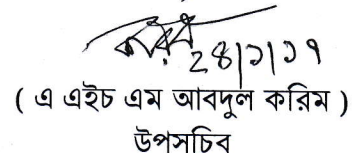 ২৪|১|১৭
( এ এইচ এম আবদুল করিম )
উপসচিব